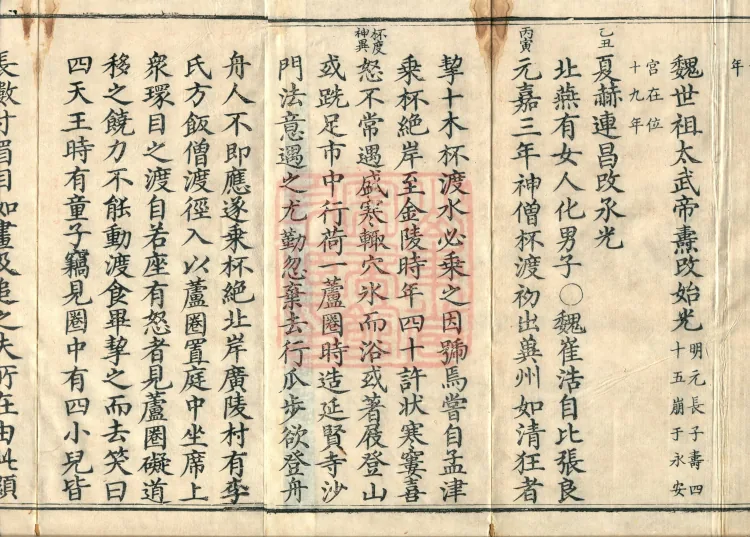 年
魏世祖太武帝燾改始光明元長子壽四
十五崩于永安
宮在位
十九年
乙丑
夏赫連昌改承光
北燕有女人化男子○魏崔浩自比張良
丙寅
元嘉三年神僧杯渡初出兾州如清狂者
挈十木杯渡水必乘之因號焉嘗自孟津
乘杯絕岸至金陵時年四十許狀寒窶喜
杯度
神異
怒不常遇盛寒輙穴氷而浴或著屐登山
或跣足市中行荷一蘆圈時造延賢寺沙
門法意遇之尤勤忽棄去行瓜步欲登舟
舟人不即應遂乘杯絕北岸廣陵村有李
氏方飯僧渡徑入以蘆圈置庭中坐席上
衆環目之渡自若座有怒者見蘆圈礙道
移之饒力不能動渡食畢挈之而去笑曰
四天王時有童子竊見圈中有四小兒皆
長數寸眉目如畫及追之失所在由此顯